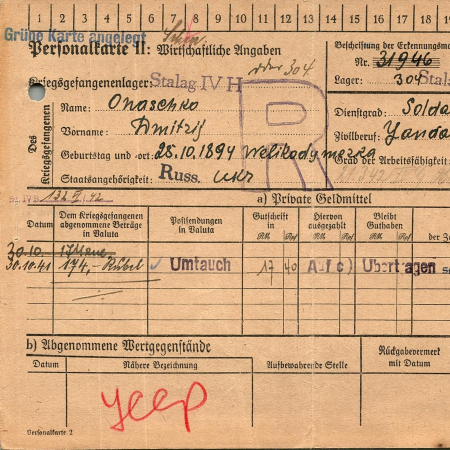 1 2 3 4 5 6 7 8 9 10 11 12 13 14 15 16 17 18 19
Grüne Karte angelegt
Personalkarte II: Wirtschaftliche Angaben
Beschriftung der Erkennungsma
Nr. 31946
Kriegsgefangenenlager: Stalag IV H oder 304
Lager: 304 Stala
R
Des Kriegsgefangenen
Name: Onaschko
Dienstgrad: Solda
Vorname: Dmitrij
Zivilberuf:
Geburtstag und -ort: 28.10.1894
Grad der Arbeitsfähigkeit:
Staatsangehörigkeit: Russ. Ukr
a) Private Geldmittel
Datum
Dem Kriegsgefangenen abgenommene Beträge in Valuta
Postsendungen in Valuta
Gutschrift in
RM Rpf
Hiervon ausgezahlt
RM Rpf
Bleibt Guthaben
RM Rpf
der Za
30.10.
30.10.41 174,- Rubel Umtausch 17 40 Auf c) Übertragen
b) Abgenommene Wertgegenstände
Datum
Nähere Bezeichnung
Aufbewahrende Stelle
Rückgabevermerk mit Datum
Personalkarte 2